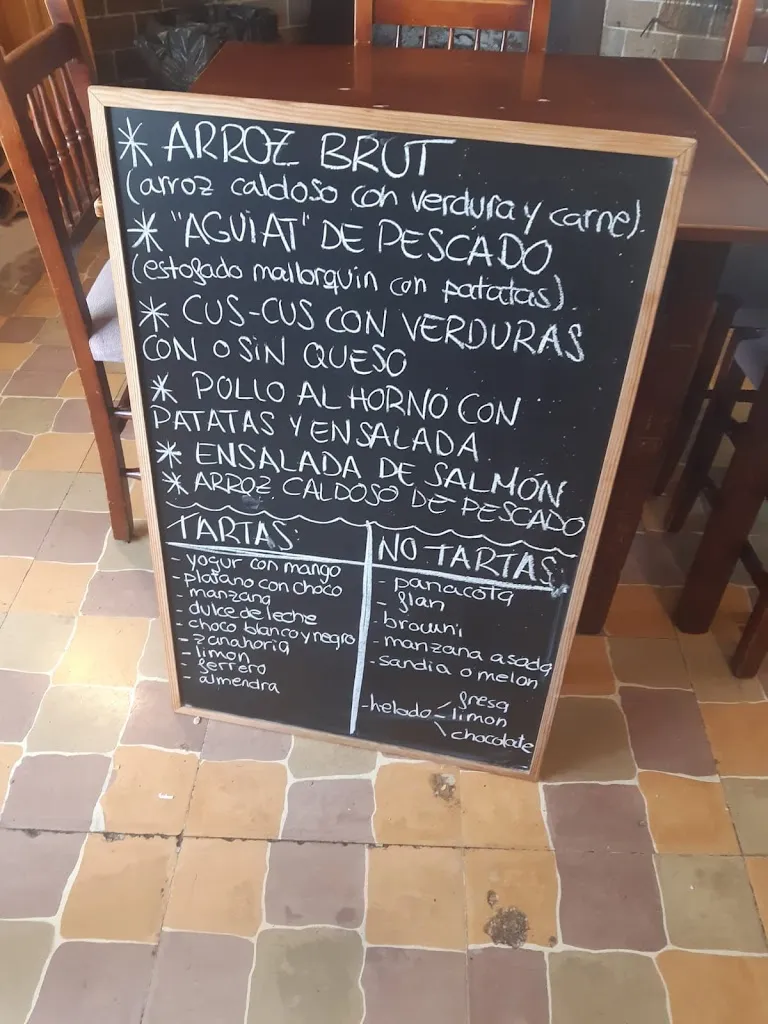 * ARROZ BRUT
(arroz caldoso con verdura y carne).
* "AGUIAT" DE PESCADO
(estofado mallorquin con patatas).
* CUS-CUS CON VERDURAS
CON O SIN QUESO
* POLLO AL HORNO CON
PATATAS Y ENSALADA
* ENSALADA DE SALMÓN
* ARROZ CALDOSO DE PESCADO
TARTAS:
- yogur con mango
- platano con choco
- manzana
- dulce de leche
- choco blanco y negro
- zanahoria
- limon
- ferrero
- almendra
NO TARTAS:
- panacota
- flan
- browni
- manzana asada
- sandia o melon
fresa
- helado - limon
chocolate